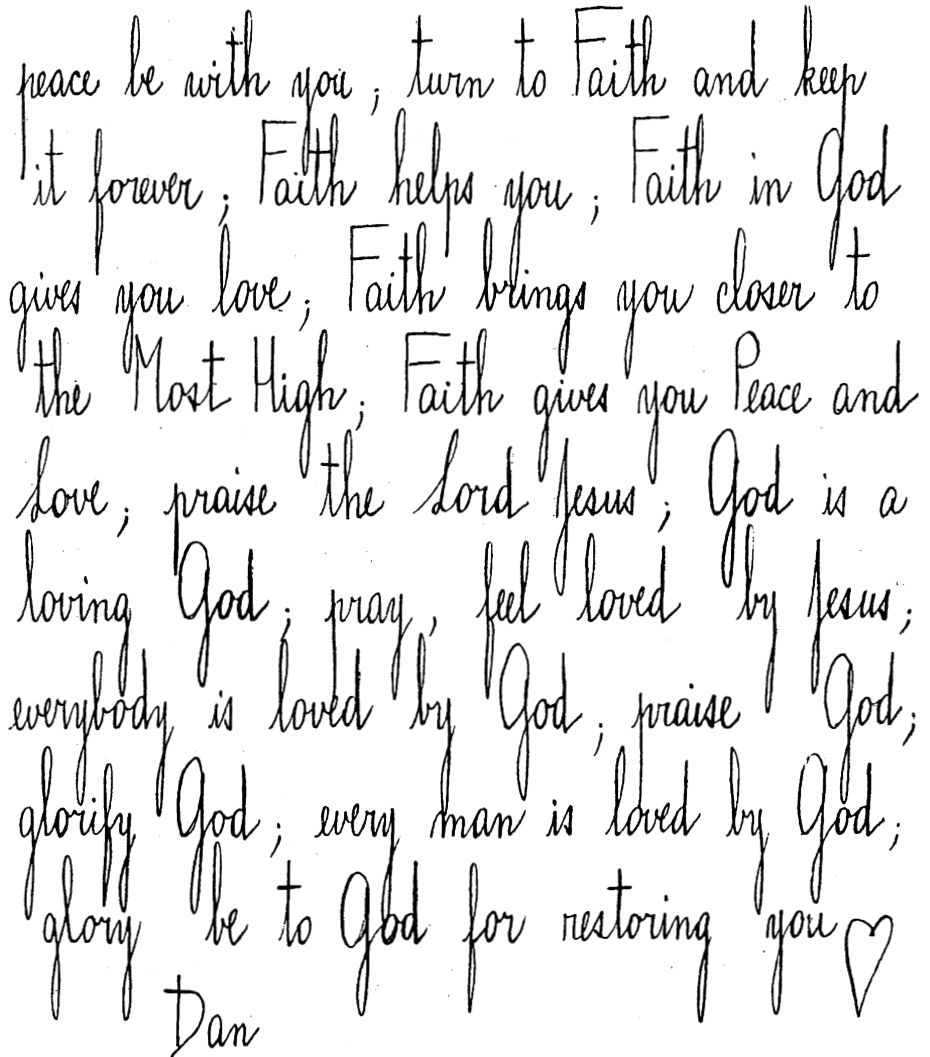 peace be with you ; turn to Faith and keep
it forever ; Faith helps you ; Faith in God
gives you love ; Faith brings you closer to
the Most High ; Faith gives you Peace and
Love ; praise the Lord Jesus ; God is a
loving God ; pray , feel loved by Jesus ;
everybody is loved by God ; praise God ;
glorify God ; every man is loved by God ;
glory be to God for restoring you ♡
Dan